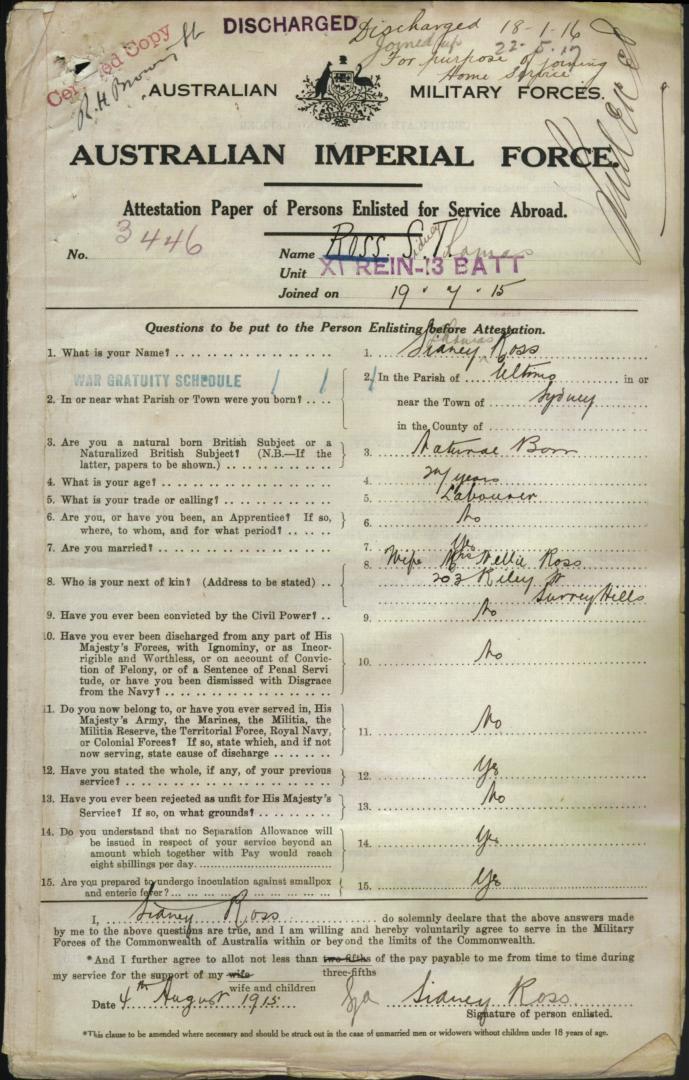 DISCHARGED
Discharged 18-1-16
Joined up 22-5-17
For purpose of joining
Home Service
Certified Copy
R H Brown
AUSTRALIAN MILITARY FORCES.
AUSTRALIAN IMPERIAL FORCE.
Attestation Paper of Persons Enlisted for Service Abroad.
No. 3446
Name ROSS S.T. Sidney Thomas
Unit XI REIN-13 BATT
Joined on 19.7.15
Questions to be put to the Person Enlisting before Attestation.
1. What is your Name? 1. Sidney Thomas Ross
WAR GRATUITY SCHEDULE 1 1 1
2. In or near what Parish or Town were you born? 2. In the Parish of in or
near the Town of Sydney
in the County of
3. Are you a natural born British Subject or a
Naturalized British Subject? (N.B.—If the
latter, papers to be shown.) 3. Natural Born
4. What is your age? 4. years
5. What is your trade or calling? 5. Labourer
6. Are you, or have you been, an Apprentice? If so,
where, to whom, and for what period? 6. No
7. Are you married? 7. Yes
8. Who is your next of kin? (Address to be stated) 8. Wife Mrs Nellie Ross
203 Riley St
Surrey Hills
9. Have you ever been convicted by the Civil Power? 9. No
10. Have you ever been discharged from any part of His
Majesty's Forces, with Ignominy, or as Incor-
rigible and Worthless, or on account of Convic-
tion of Felony, or of a Sentence of Penal Servi
tude, or have you been dismissed with Disgrace
from the Navy? 10. No
11. Do you now belong to, or have you ever served in, His
Majesty's Army, the Marines, the Militia, the
Militia Reserve, the Territorial Force, Royal Navy,
or Colonial Forces? If so, state which, and if not
now serving, state cause of discharge 11. No
12. Have you stated the whole, if any, of your previous
service? 12. Yes
13. Have you ever been rejected as unfit for His Majesty's
Service? If so, on what grounds? 13. No
14. Do you understand that no Separation Allowance will
be issued in respect of your service beyond an
amount which together with Pay would reach
eight shillings per day. 14. Yes
15. Are you prepared to undergo inoculation against smallpox
and enteric fever? 15. Yes
I, Sidney Ross do solemnly declare that the above answers made
by me to the above questions are true, and I am willing and hereby voluntarily agree to serve in the Military
Forces of the Commonwealth of Australia within or beyond the limits of the Commonwealth.
*And I further agree to allot not less than two-fifths of the pay payable to me from time to time during
three-fifths
my service for the support of my wife
wife and children
Date 4th August 1915 Sidney Ross
Signature of person enlisted.
*This clause to be amended where necessary and should be struck out in the case of unmarried men or widowers without children under 18 years of age.